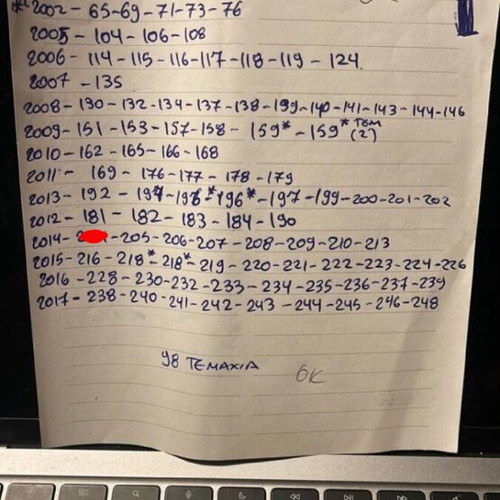 *2002 - 65-69-71-73-76
2005 - 104-106-108
2006 - 114-115-116-117-118-119-124
2007 - 135
2008 - 130-132-134-137-138-139-140-141-143-144-146
2009 - 151-153-157-158 - 159* - 159* TEM (2)
2010 - 162-165-166-168
2011 - 169-176-177-178-179
2013 - 192 - 194-196*-196*-197-199-200-201-202
2012 - 181 - 182 - 183 - 184 - 190
2014 - -205-206-207-208-209-210-213
2015-216-218*-218*-219-220-221-222-223-224-226
2016 - 228-230-232-233-234-235-236-237-239
2017-238-240-241-242-243-244-245-246-248
98 ΤΕΜΑΧΙΑ
OK